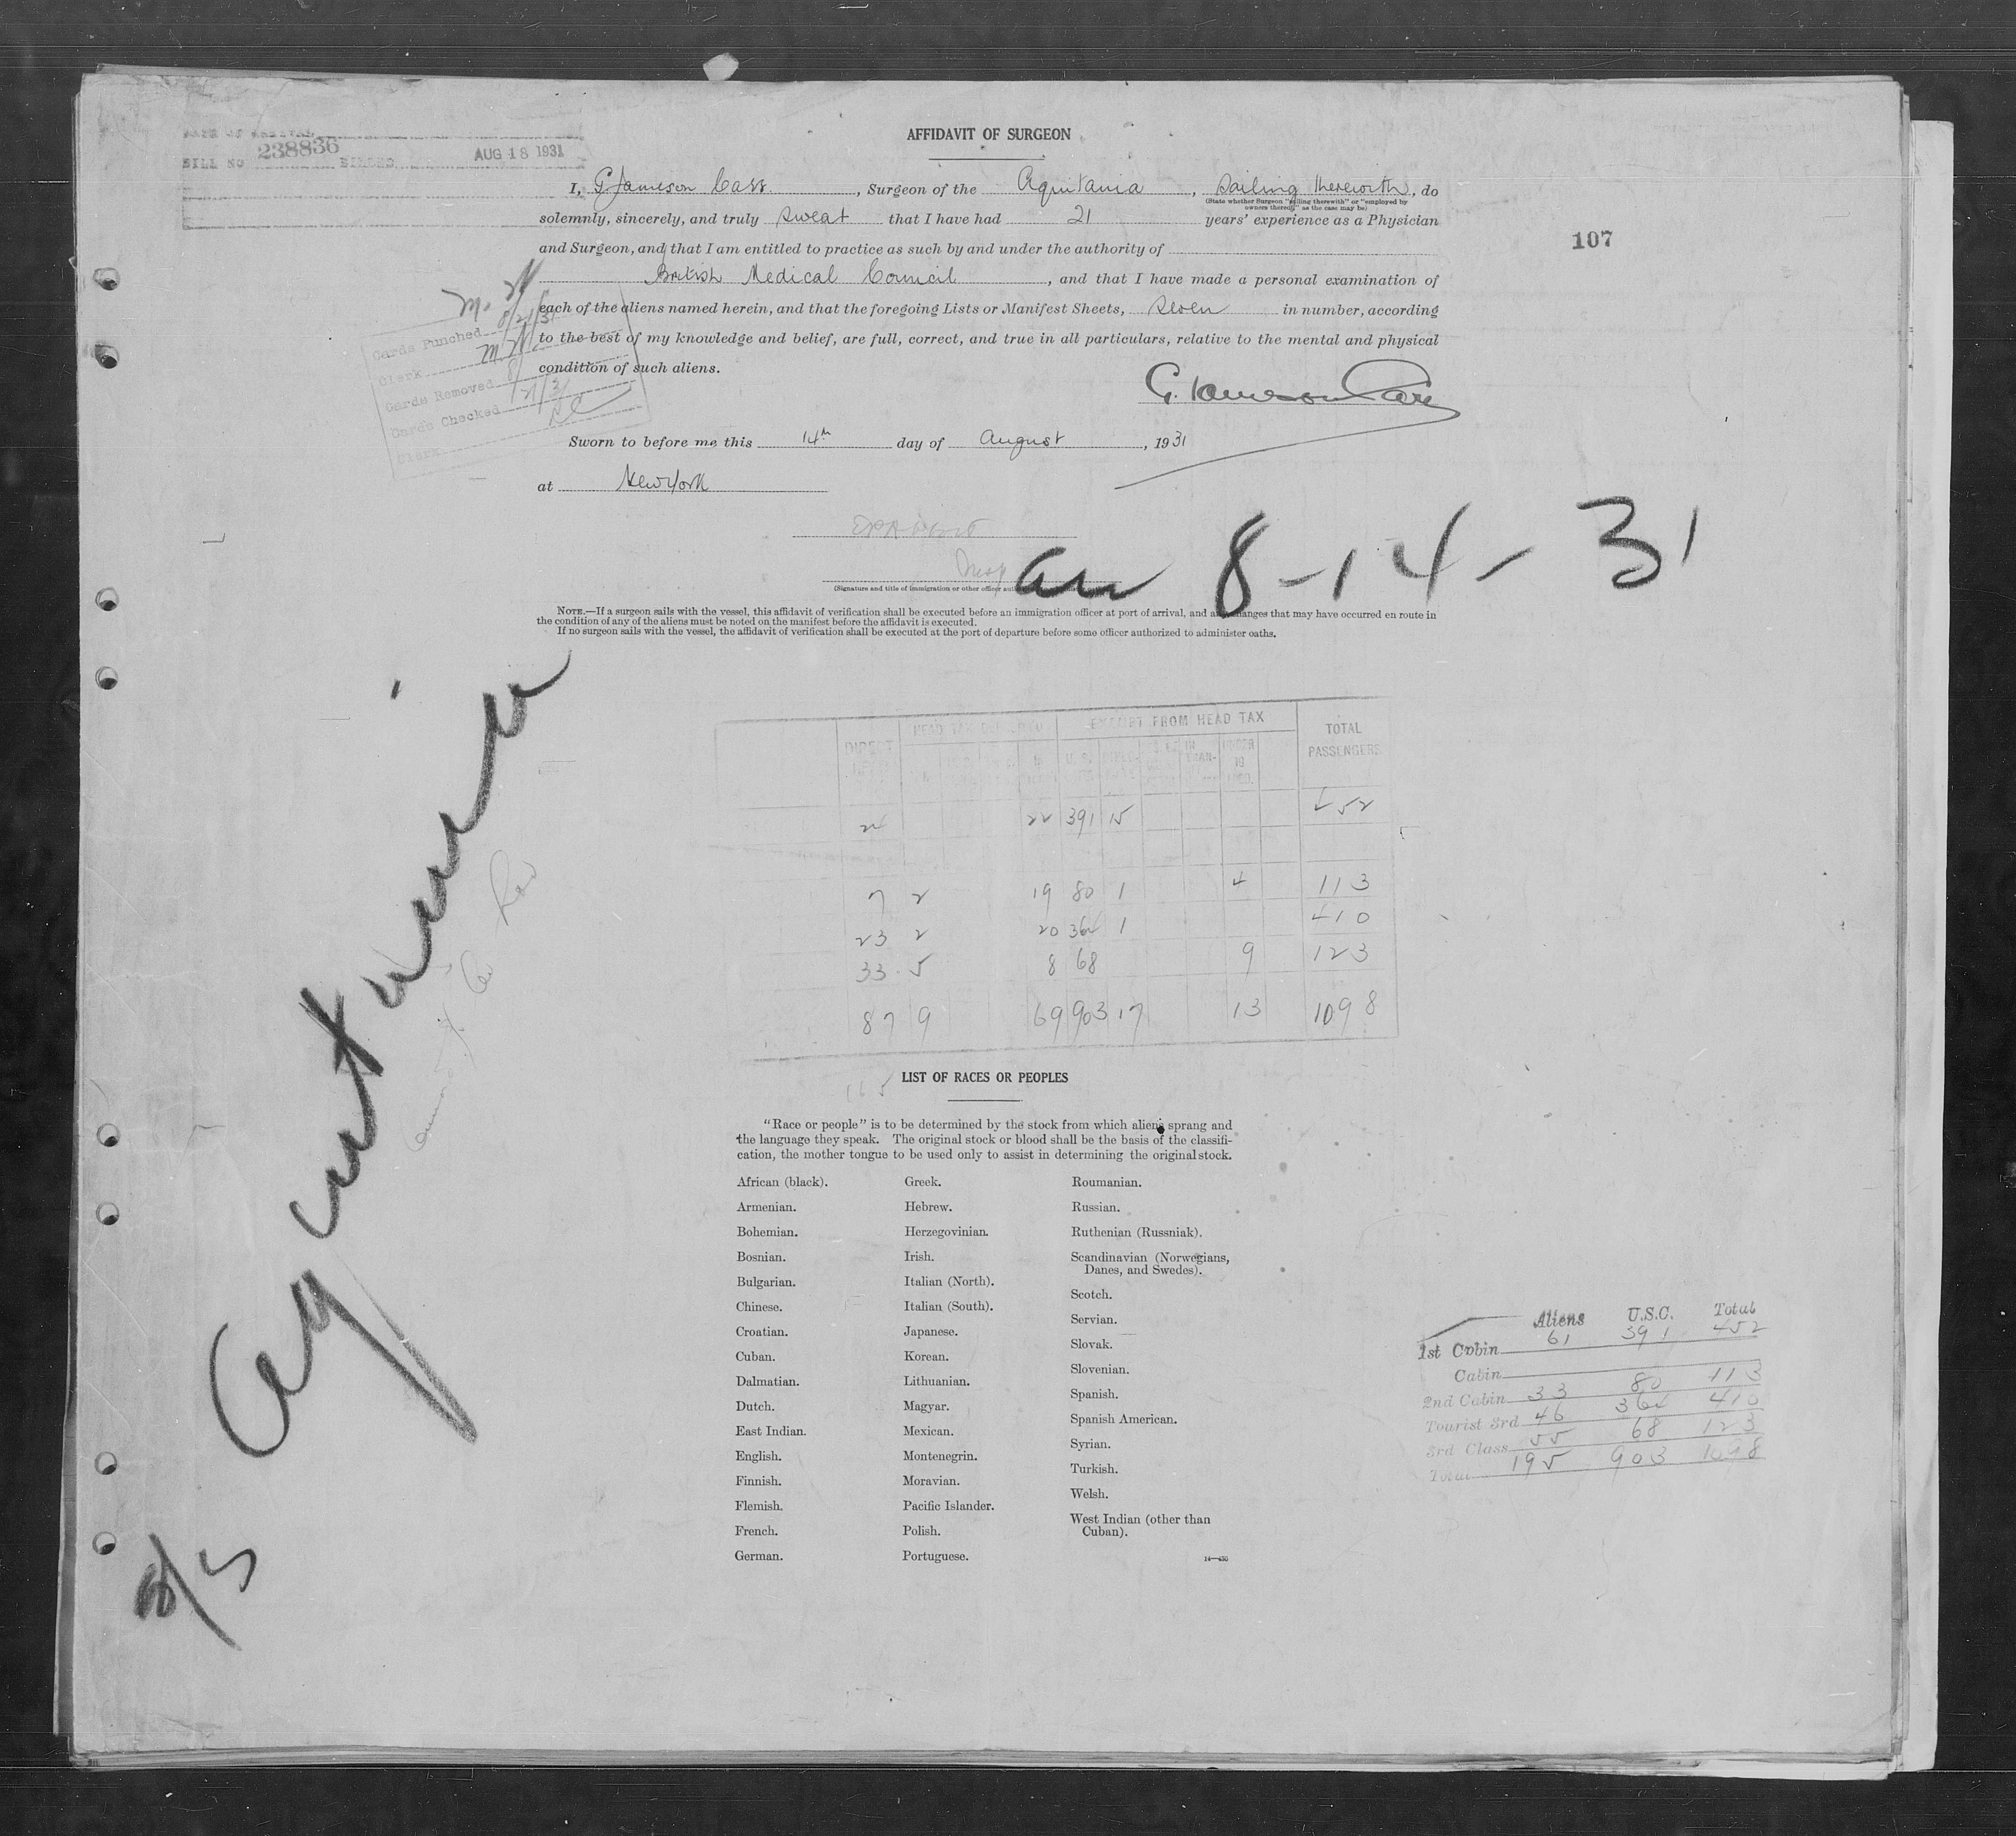 AFFIDAVIT OF SURGEON
DATE OF ARRIVAL
BILL NO 238836 BILLED AUG 18 1931
107
I, G Jameson Cass, Surgeon of the Aquitania, Sailing therewith, do
(State whether Surgeon "sailing therewith" or "employed by
owners thereof," as the case may be)
solemnly, sincerely, and truly swear that I have had 21 years' experience as a Physician
and Surgeon, and that I am entitled to practice as such by and under the authority of
British Medical Council, and that I have made a personal examination of
each of the aliens named herein, and that the foregoing Lists or Manifest Sheets, seven in number, according
to the best of my knowledge and belief, are full, correct, and true in all particulars, relative to the mental and physical
condition of such aliens.
Cards Punched
Clerk
Cards Removed
Cards Checked
Clerk
Sworn to before me this 14th day of August, 1931
at New York
8-14-31
(Signature and title of immigration or other officer
NOTE.—If a surgeon sails with the vessel, this affidavit of verification shall be executed before an immigration officer at port of arrival, and any changes that may have occurred en route in
the condition of any of the aliens must be noted on the manifest before the affidavit is executed.
If no surgeon sails with the vessel, the affidavit of verification shall be executed at the port of departure before some officer authorized to administer oaths.
Aquitania
HEAD TAX EXEMPT FROM HEAD TAX TOTAL PASSENGERS
DIRECT
UNDER 16
22 391 15 452
7 2 19 80 1 4 113
23 2 20 364 1 410
33 5 8 68 9 123
87 9 69 903 17 13 1098
165
LIST OF RACES OR PEOPLES
"Race or people" is to be determined by the stock from which aliens sprang and
the language they speak. The original stock or blood shall be the basis of the classifi-
cation, the mother tongue to be used only to assist in determining the original stock.
African (black).
Armenian.
Bohemian.
Bosnian.
Bulgarian.
Chinese.
Croatian.
Cuban.
Dalmatian.
Dutch.
East Indian.
English.
Finnish.
Flemish.
French.
German.
Greek.
Hebrew.
Herzegovinian.
Irish.
Italian (North).
Italian (South).
Japanese.
Korean.
Lithuanian.
Magyar.
Mexican.
Montenegrin.
Moravian.
Pacific Islander.
Polish.
Portuguese.
Roumanian.
Russian.
Ruthenian (Russniak).
Scandinavian (Norwegians,
Danes, and Swedes).
Scotch.
Servian.
Slovak.
Slovenian.
Spanish.
Spanish American.
Syrian.
Turkish.
Welsh.
West Indian (other than
Cuban).
Aliens U.S.C. Total
1st Cabin 61 391 452
Cabin
2nd Cabin 33 80 113
Tourist 3rd 46 364 410
3rd Class 55 68 123
Total 195 903 1098